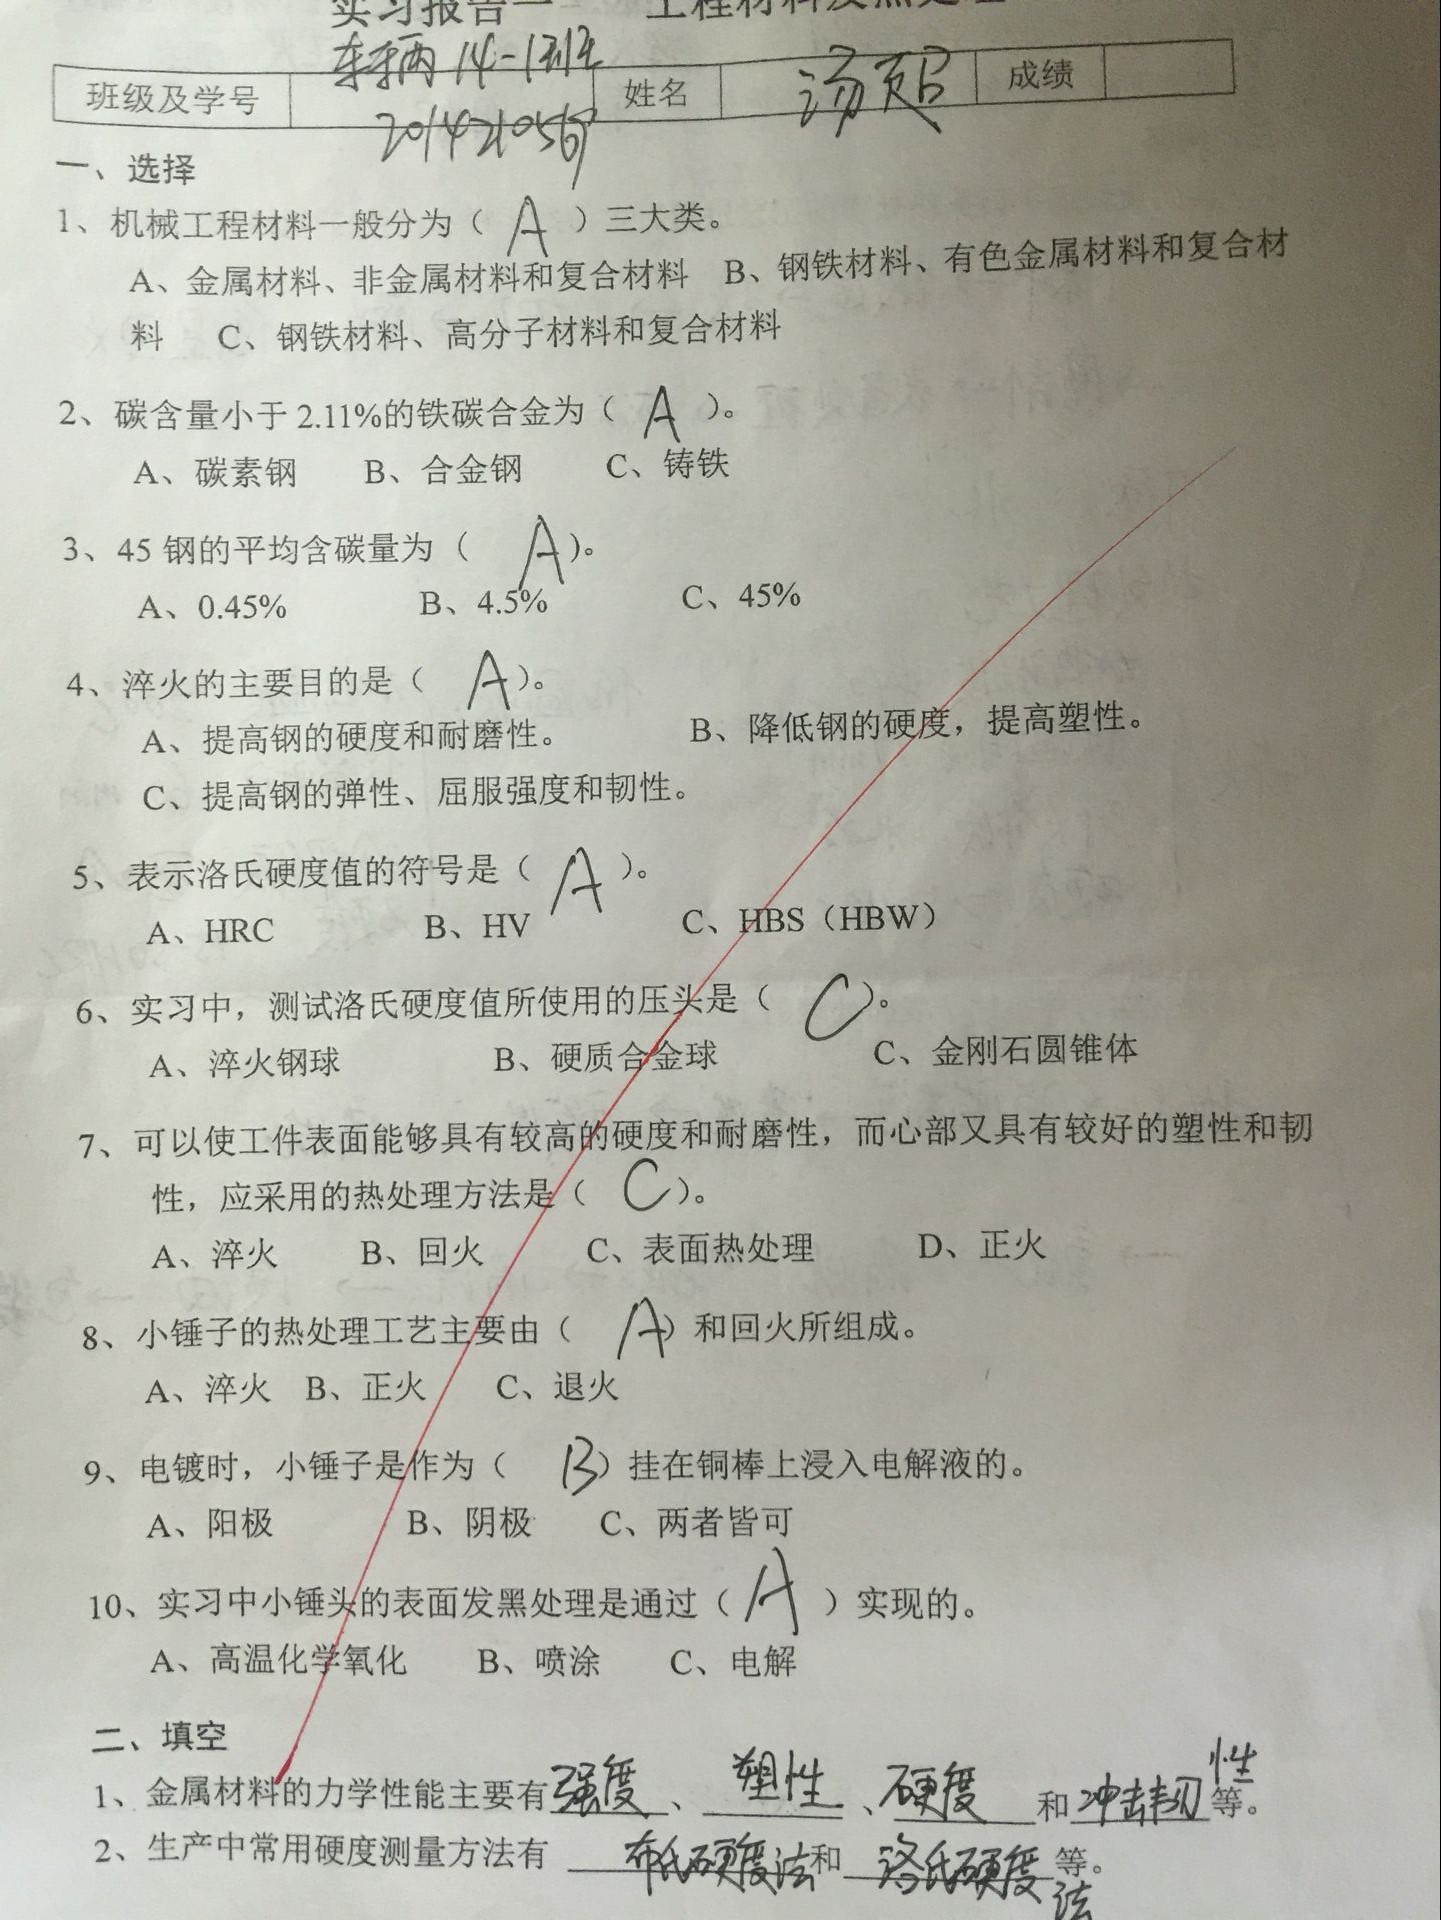 实习报告一 工程材料及热处理
车辆14-1班
班级及学号 姓名 汤超 成绩
一、选择
1、机械工程材料一般分为（ A ）三大类。
A、金属材料、非金属材料和复合材料 B、钢铁材料、有色金属材料和复合材
料 C、钢铁材料、高分子材料和复合材料
2、碳含量小于 2.11%的铁碳合金为（ A ）。
A、碳素钢 B、合金钢 C、铸铁
3、45 钢的平均含碳量为（ A ）。
A、0.45% B、4.5% C、45%
4、淬火的主要目的是（ A ）。
A、提高钢的硬度和耐磨性。 B、降低钢的硬度，提高塑性。
C、提高钢的弹性、屈服强度和韧性。
5、表示洛氏硬度值的符号是（ A ）。
A、HRC B、HV C、HBS（HBW）
6、实习中，测试洛氏硬度值所使用的压头是（ C ）。
A、淬火钢球 B、硬质合金球 C、金刚石圆锥体
7、可以使工件表面能够具有较高的硬度和耐磨性，而心部又具有较好的塑性和韧
性，应采用的热处理方法是（ C ）。
A、淬火 B、回火 C、表面热处理 D、正火
8、小锤子的热处理工艺主要由（ A ）和回火所组成。
A、淬火 B、正火 C、退火
9、电镀时，小锤子是作为（ B ）挂在铜棒上浸入电解液的。
A、阳极 B、阴极 C、两者皆可
10、实习中小锤头的表面发黑处理是通过（ A ）实现的。
A、高温化学氧化 B、喷涂 C、电解
二、填空
1、金属材料的力学性能主要有强度、塑性、硬度和冲击韧性等。
2、生产中常用硬度测量方法有 布氏硬度法和 洛氏硬度法等。